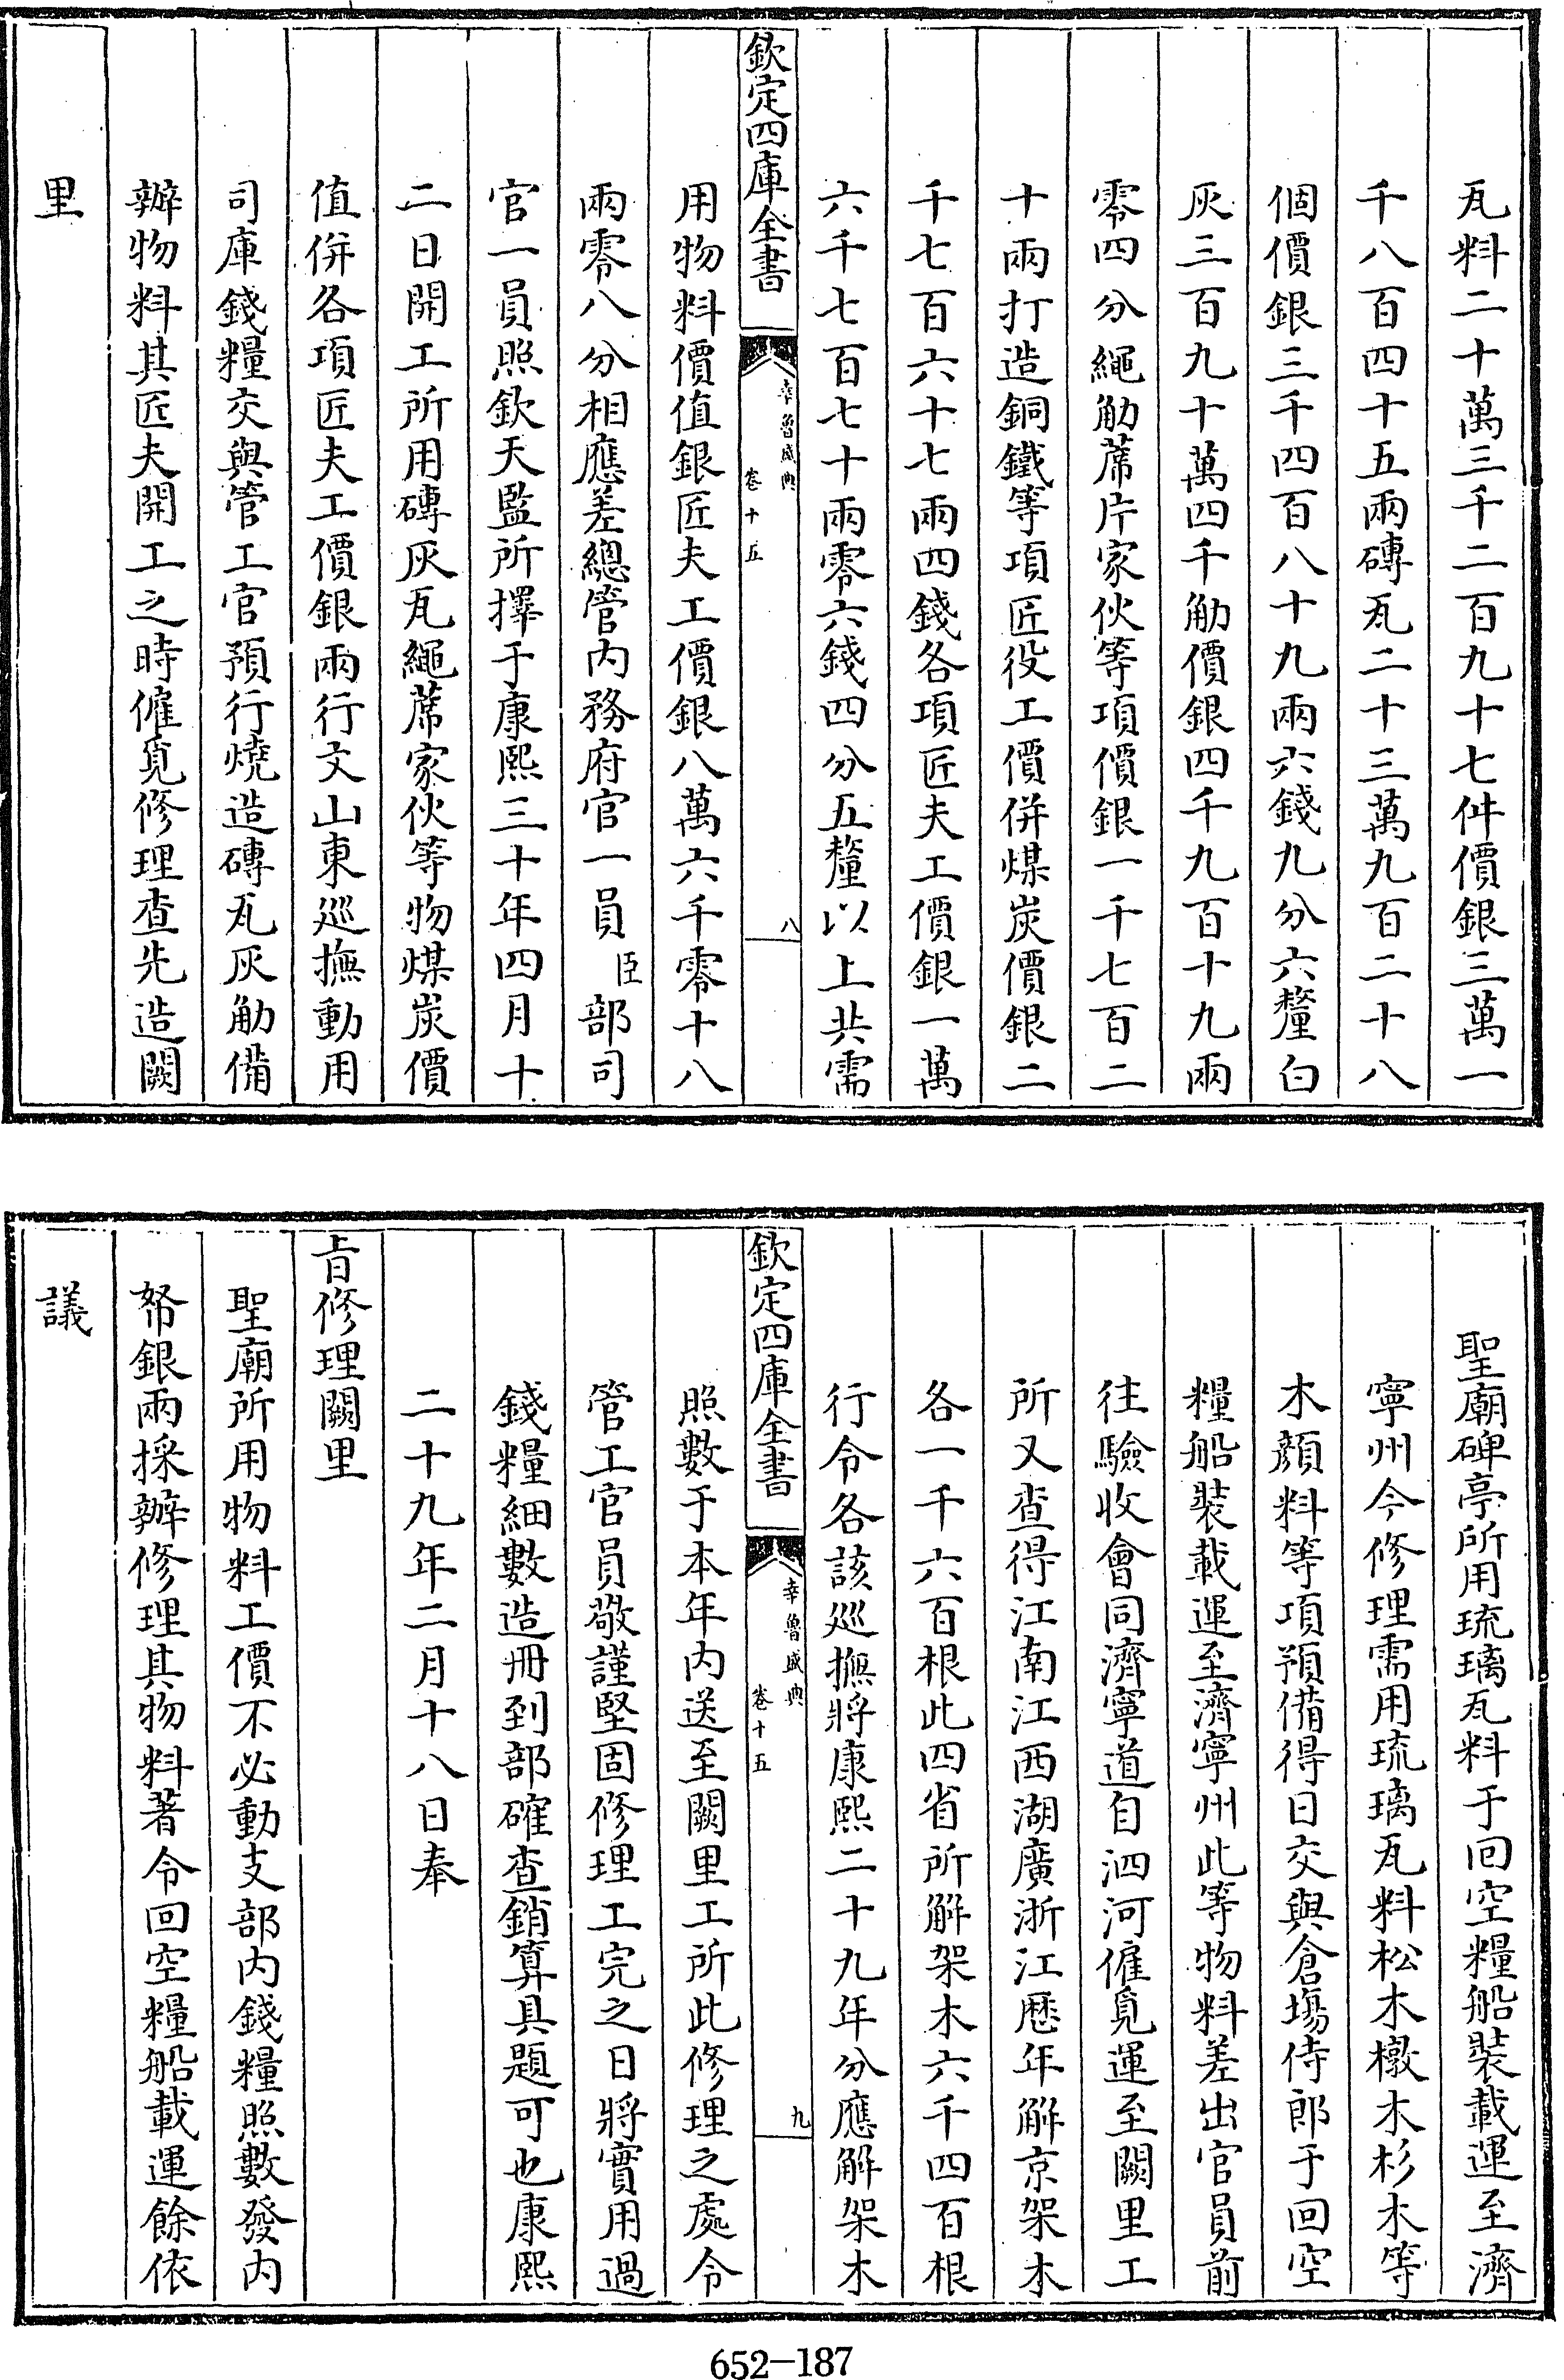 瓦料二十萬三千二百九十七件價銀三萬一
千八百四十五兩磚瓦二十三萬九百二十八
個價銀三千四百八十九兩六錢九分六釐白
灰三百九十萬四千觔價銀四千九百十九兩
零四分繩觔蓆片家伙等項價銀一千七百二
十兩打造銅鐵等項匠役工價併煤炭價銀二
千七百六十七兩四錢各項匠夫工價銀一萬
六千七百七十兩零六錢四分五釐以上共需
欽定四庫全書
幸魯盛典
卷十五
八
用物料價值銀匠夫工價銀八萬六千零十八
兩零八分相應差總管內務府官一員臣部司
官一員照欽天監所擇于康熙三十年四月十
二日開工所用磚灰瓦繩蓆家伙等物煤炭價
值併各項匠夫工價銀兩行文山東巡撫動用
司庫錢糧交與管工官預行燒造磚瓦灰觔備
辦物料其匠夫開工之時僱覓修理查先造闕
里
聖廟碑亭所用琉璃瓦料于回空糧船裝載運至濟
寧州今修理需用琉璃瓦料松木橔木杉木等
木顏料等項預備得日交與倉場侍郎于回空
糧船裝載運至濟寧州此等物料差出官員前
往驗收會同濟寧道自泗河僱覓運至闕里工
所又查得江南江西湖廣浙江歷年解京架木
各一千六百根此四省所解架木六千四百根
行令各該巡撫將康熙二十九年分應解架木
欽定四庫全書
幸魯盛典
卷十五
九
照數于本年內送至闕里工所此修理之處令
管工官員敬謹堅固修理工完之日將實用過
錢糧細數造冊到部確查銷算具題可也康熙
二十九年二月十八日奉
旨修理闕里
聖廟所用物料工價不必動支部內錢糧照數發內
帑銀兩採辦修理其物料著令回空糧船載運餘依
議
652-187